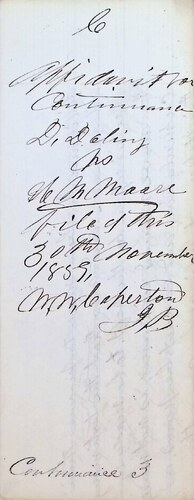 C
Affidavit for
Continuance
D. Doling
vs
H M Moore
filed this
30th November
1859,
W, W, Caperton
J B
Continuance 3